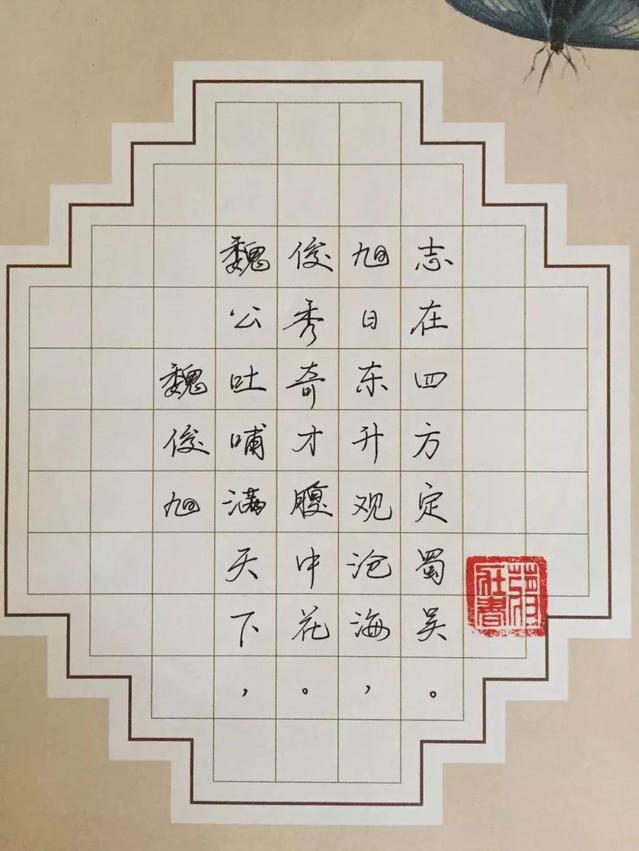 魏俊旭
魏公吐哺满天下，
俊秀奇才腹中花。
旭日东升观沧海，
志在四方定蜀吴。